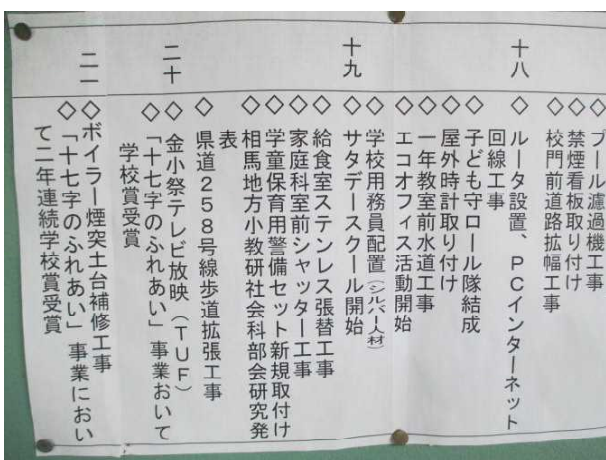 ◇プール濾過機工事
◇禁煙看板取り付け
◇校門前道路拡幅工事
十八
◇ルータ設置、PCインターネット
回線工事
◇子ども守ロール隊結成
◇屋外時計取り付け
◇一年教室前水道工事
◇エコオフィス活動開始
十九
◇学校用務員配置(シルバー人材)
◇サタデースクール開始
◇給食室ステンレス張替工事
◇家庭科室前シャッター工事
◇学童保育用警備セット新規取付け
◇相馬地方小教研社会科部会研究発
表
◇県道258号線歩道拡張工事
二十
◇金小祭テレビ放映(TUF)
◇「十七字のふれあい」事業おいて
学校賞受賞
二一
◇ボイラー煙突土台補修工事
◇「十七字のふれあい」事業におい
て二年連続学校賞受賞